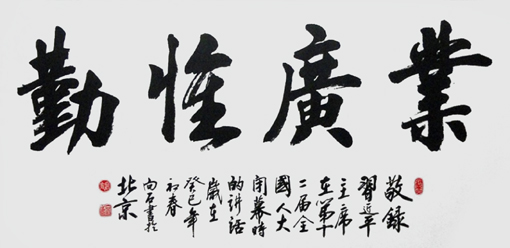 業廣惟勤
敬録
習近平
主席
在第十
二届全
國人大
閉幕時
的讲话
歲在
癸巳年
初春
向石書於
北京